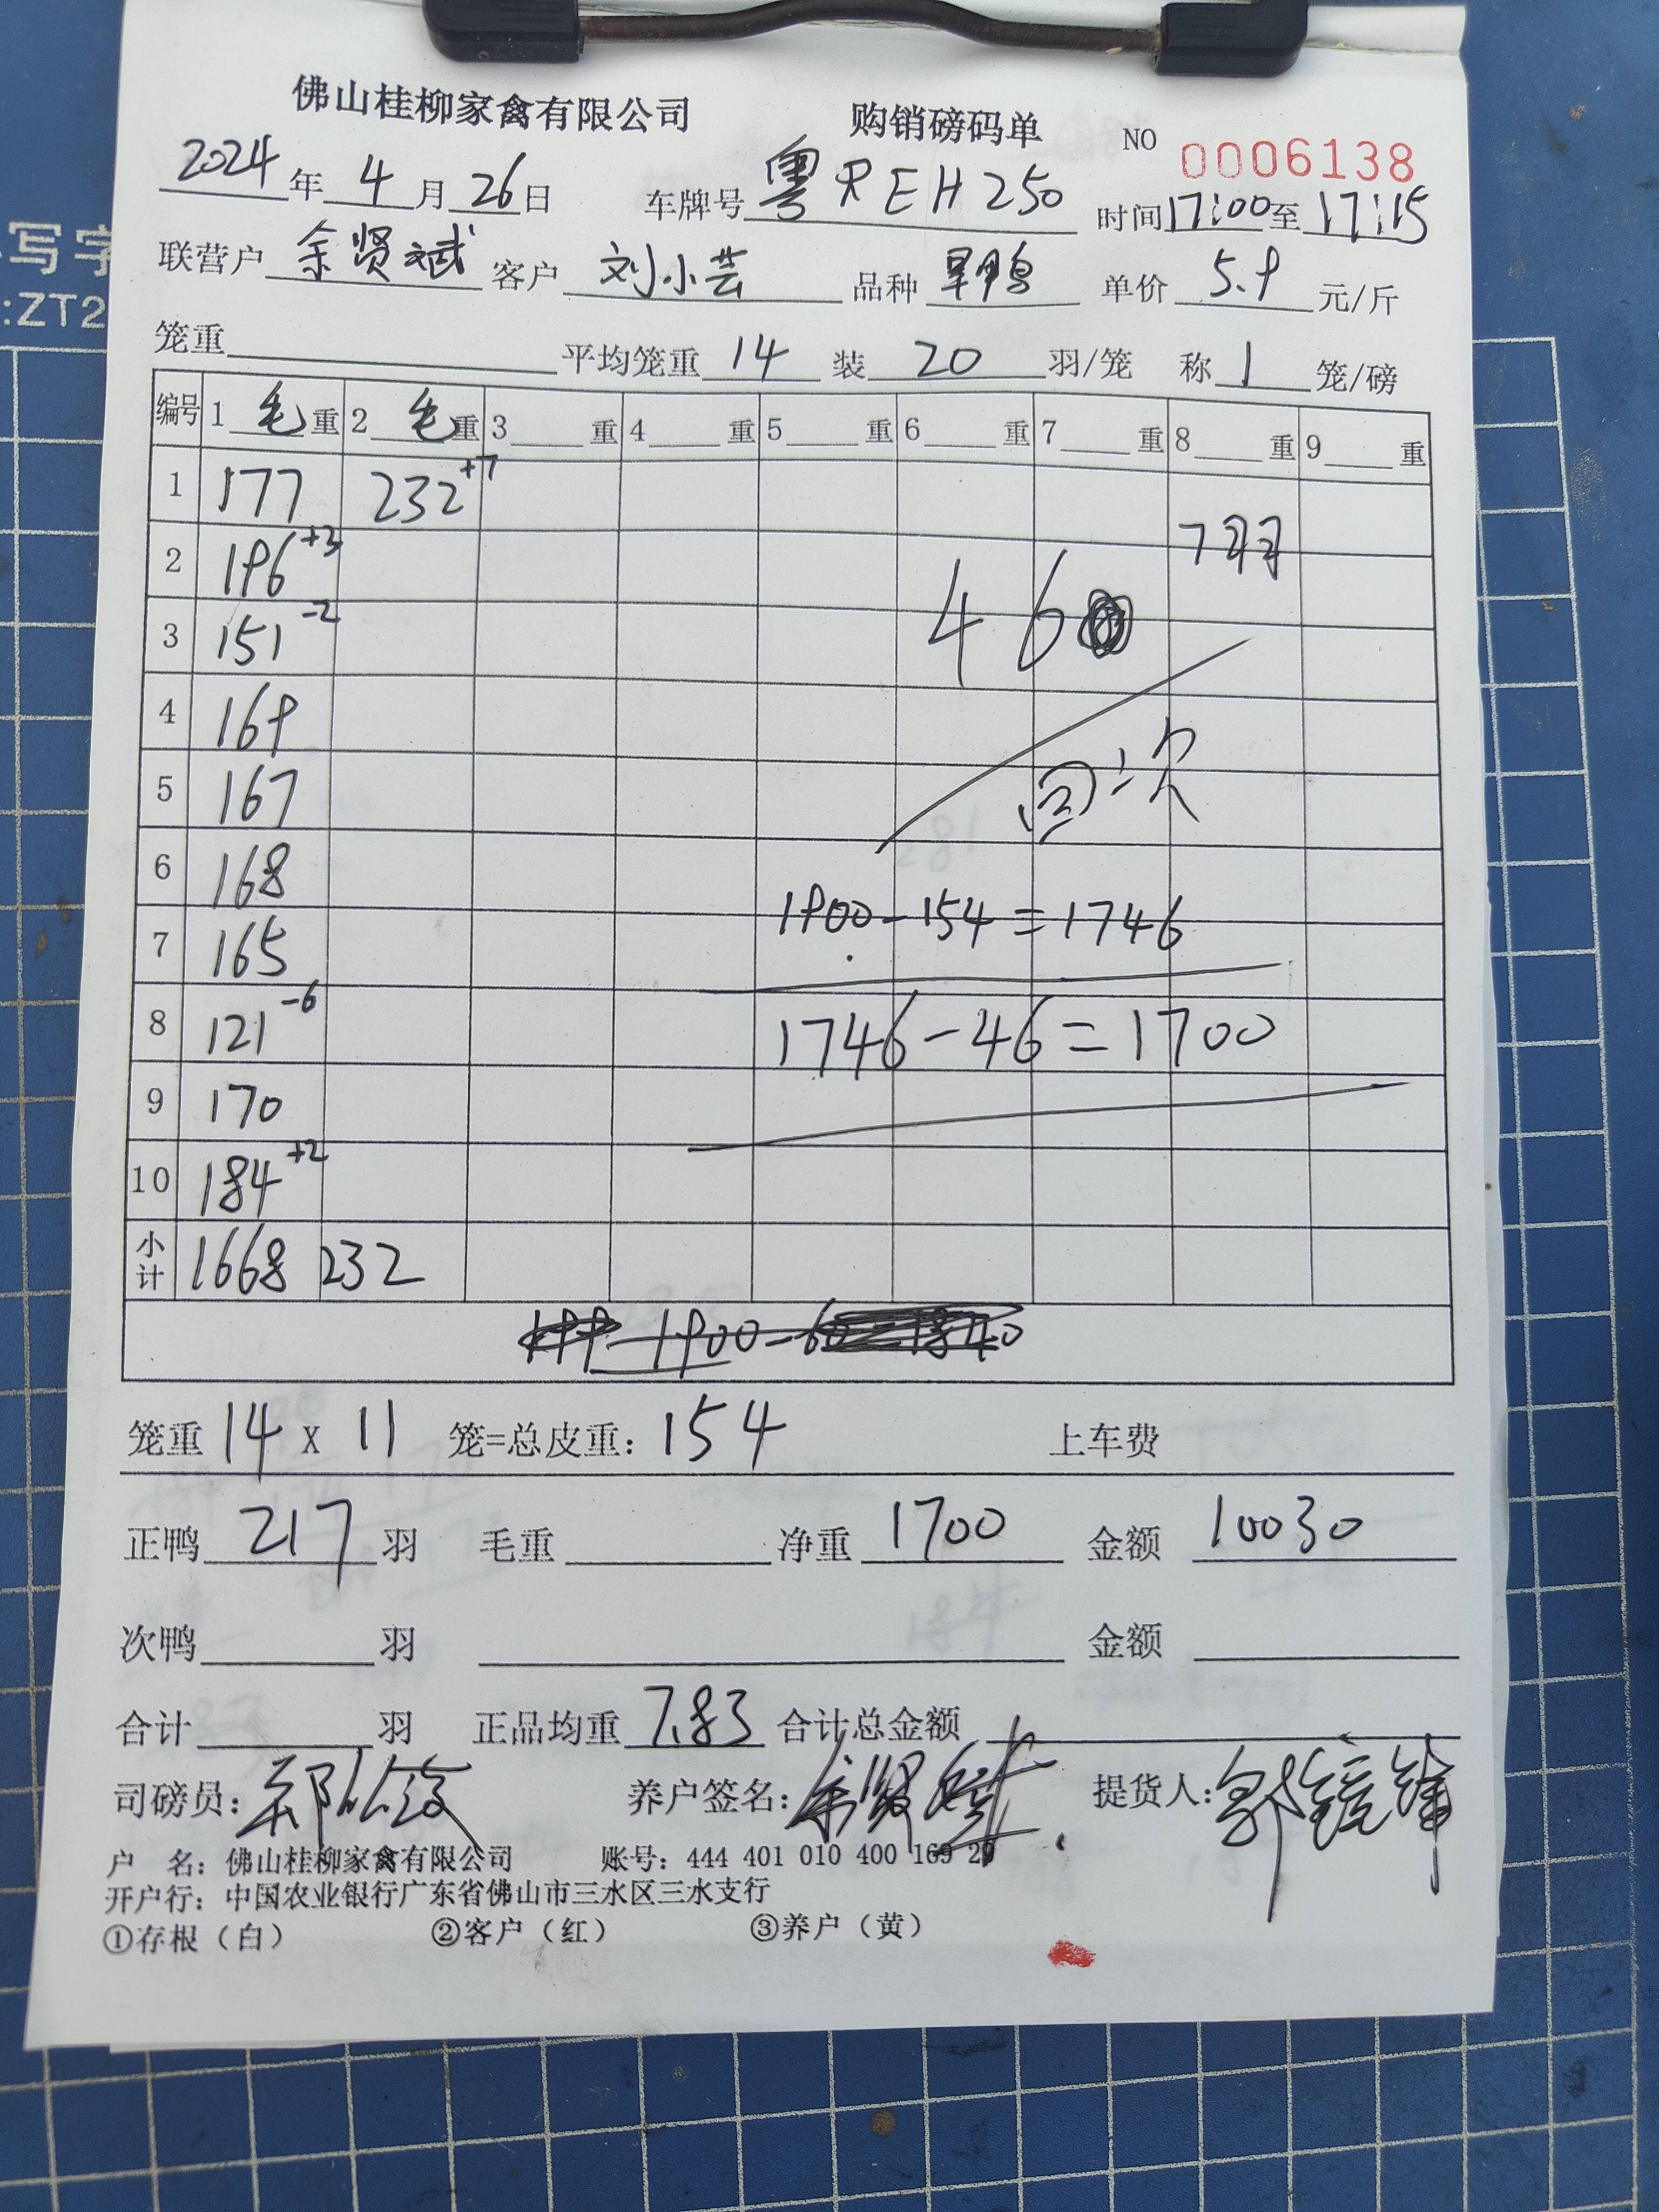 佛山桂柳家禽有限公司 购销磅码单 NO 0006138
2024年4月26日 车牌号粤REH250 时间17:00至17:15
联营户余贤斌客户刘小芸 品种旱鸭 单价5.9元/斤
笼重 平均笼重14装20羽/笼 称1笼/磅
编号 1毛重 2毛重 3重 4重 5重 6重 7重 8重 9重
1 177 232+7
7羽
2 196+3
460
3 151-2
4 169
5 167
次
6 168
1900-154=1746
7 165
8 121-6
1746-46=1700
9 170
10 184+2
小计 1668 232
1900-60=1840
笼重14x11笼=总皮重:154 上车费
正鸭217羽 毛重 净重1700 金额10030
次鸭 羽 金额
合计 羽 正品均重7.83合计总金额
司磅员: 养户签名:余贤斌 提货人:
户 名:佛山桂柳家禽有限公司 账号:444 401 010 400 169 29
开户行:中国农业银行广东省佛山市三水区三水支行
①存根(白) ②客户(红) ③养户(黄)
写字
:ZT2